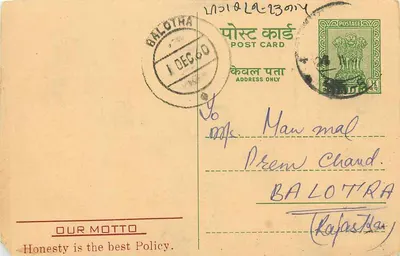 पोस्ट कार्ड
POST CARD
केवल पता
ADDRESS ONLY
POSTAGE
BALOTRA
1 DEC 60
To
M/s. Man mal
Prem Chand.
BALOTRA
(Rajasthan)
OUR MOTTO
Honesty is the best Policy.